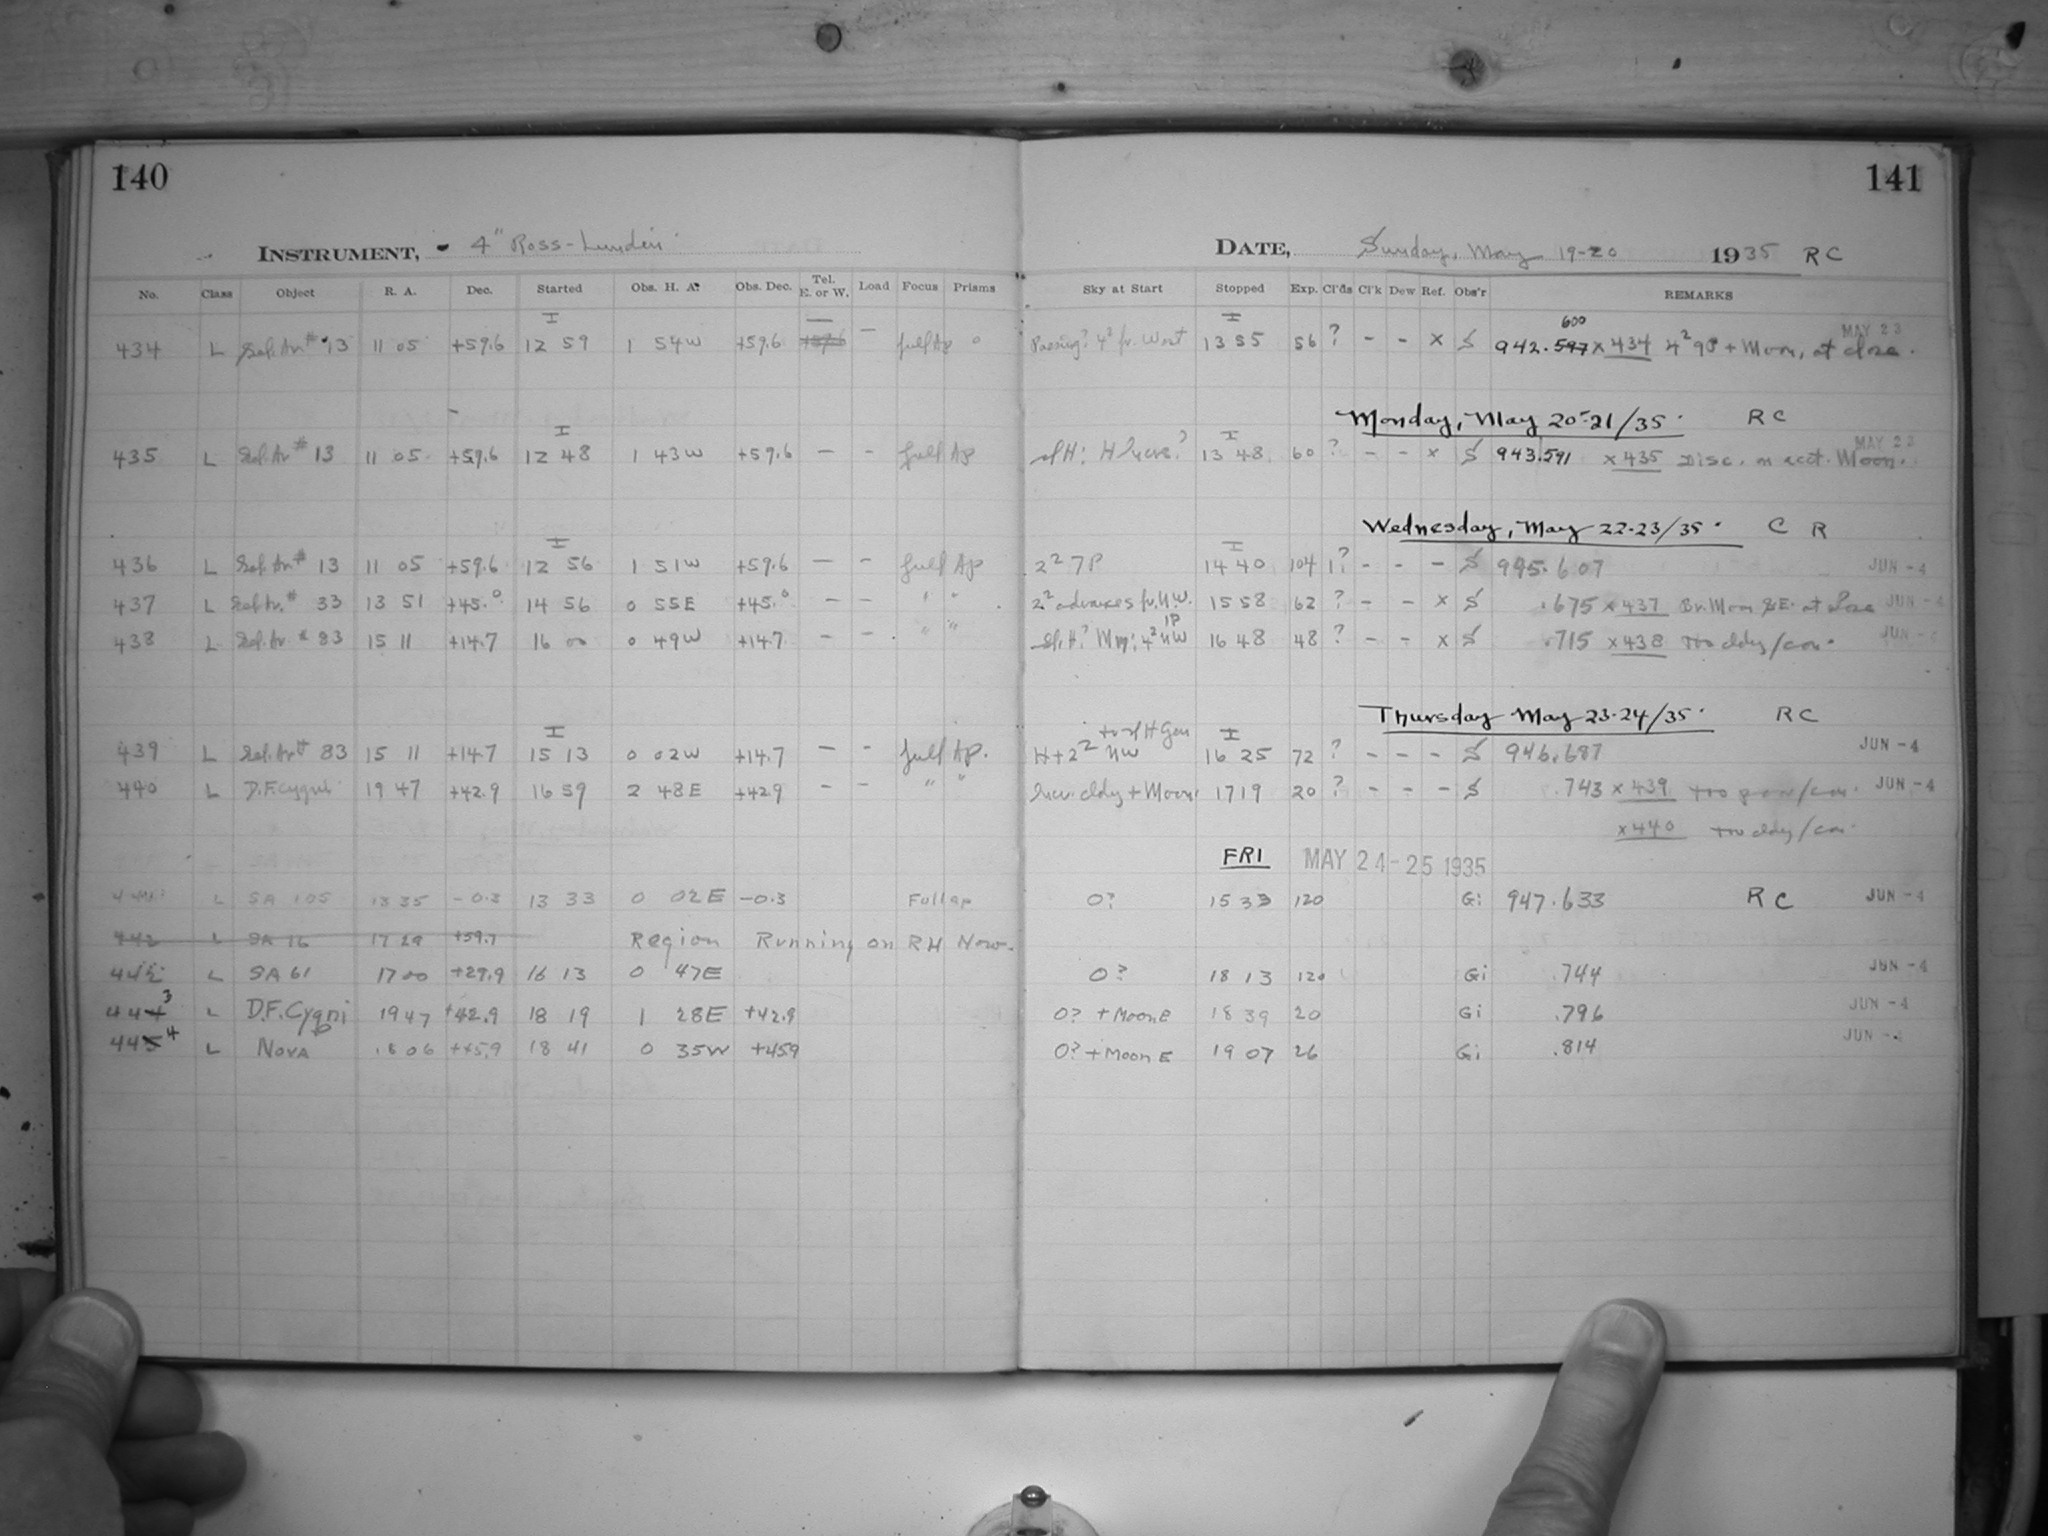 140
141
INSTRUMENT, 4" Ross-Lundin
DATE, Sunday, May 19-20 1935 R C
No. Class Object R. A. Dec. Started Obs. H. A. Obs. Dec. Tel. E. or W. Load Focus Prisms Sky at Start Stopped Exp. Cl'ds Cl'k Dew Ref. Obs'r REMARKS
I I 600 MAY 23
434 L Sel. Ar # 13 11 05 +59.6 12 59 1 54W +59.6 +59.6 — full Ap Passing? 4² fr. West 13 55 56 ? - - x S 942.597 x 434 4² 90 + Moon, at close.
Monday, May 20-21/35. R C
I I MAY 23
435 L Sel. Ar # 13 11 05 +59.6 12 48 1 43W +59.6 — — full Ap 13 48 60 ? - - x S 943.591 x 435 Disc. on acct. Moon.
Wednesday, May 22-23/35. C R
I I
436 L Sel. Ar # 13 11 05 +59.6 12 56 1 51W +59.6 — - full Ap 2² 7P 14 40 104 1? - - - S 945.607 JUN -4
437 L Sel. Ar. # 33 13 51 +45.0 14 56 0 55E +45.0 — - " " 2² advances fr. N.W. 15 58 62 ? - - x S .675 x 437 Br. Moon SE. at close JUN -4
438 L Sel. Ar. # 83 15 11 +14.7 16 00 0 49W +14.7 - - " " 4² NW 1P 16 48 48 ? - - x S .715 x 438 too cldy/con. JUN -4
Thursday May 23-24/35. R C
I I
439 L Sel. Ar # 83 15 11 +14.7 15 13 0 02W +14.7 - - full Ap. H+2² NW 16 25 72 ? - - - S 946.687 JUN -4
440 L D.F. Cygni 19 47 +42.9 16 59 2 48E +42.9 - - " " cldy + Moon 17 19 20 ? - - - S .743 x 439 too poor/con. JUN -4
x 440 too cldy/con.
FRI MAY 24-25 1935
441 L SA 105 13 35 -0.3 13 33 0 02E -0.3 Full ap 0? 15 33 120 Gi 947.633 R C JUN -4
442 L SA 16 17 29 +59.7 Region Running on RH Now.
442 L SA 61 17 00 +29.9 16 13 0 47E 0? 18 13 120 Gi .744 JUN -4
444 3 L D.F. Cygni 19 47 +42.9 18 19 1 28E +42.9 0? + Moon E 18 39 20 Gi .796 JUN -4
445 4 L Nova 18 06 +45.9 18 41 0 35W +45.9 0? + Moon E 19 07 26 Gi .814 JUN -4